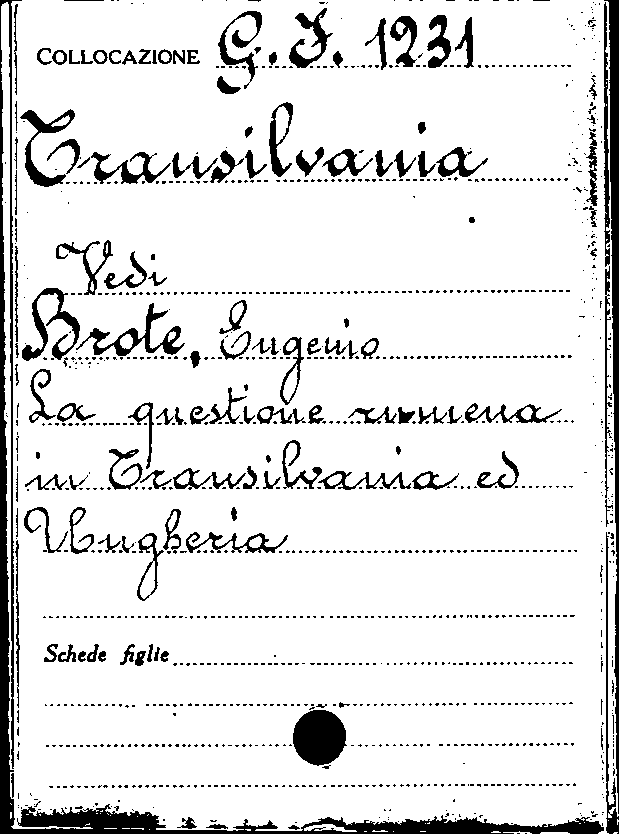 COLLOCAZIONE G. I. 1231
Transilvania
Vedi
Brote, Eugenio
La questione rumena
in Transilvania ed
Ungheria
Schede figlie